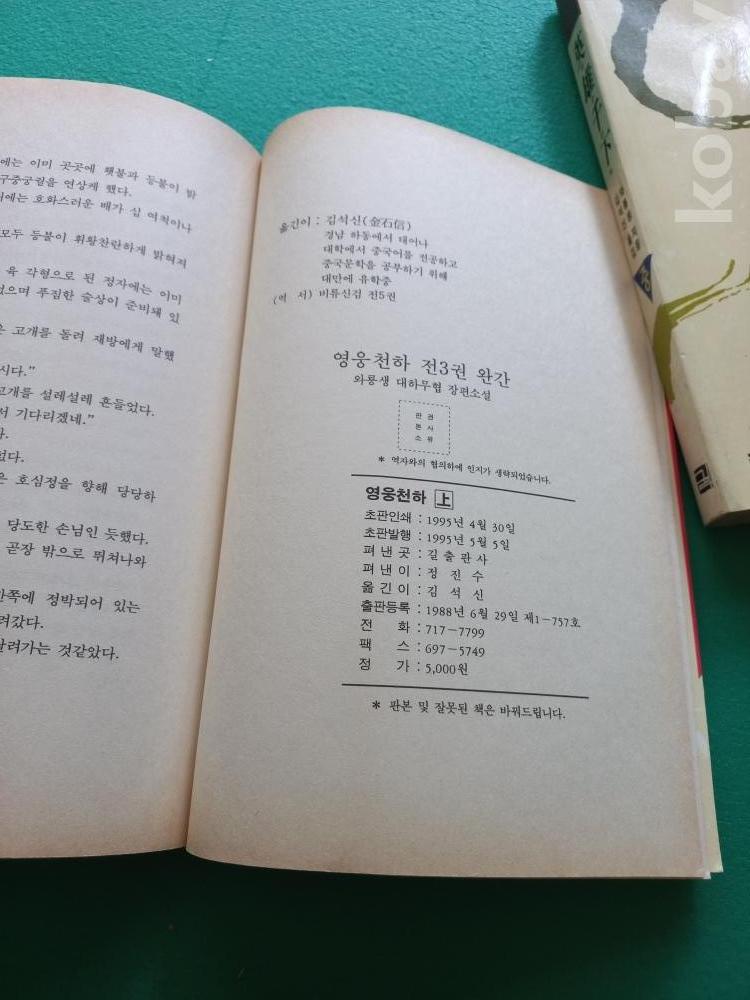 에는 이미 곳곳에 횃불과 등불이 밝
구중궁궐을 연상케 했다.
에는 호화스러운 배가 십 여척이나
모두 등불이 휘황찬란하게 밝혀져
육 각형으로 된 정자에는 이미
었으며 푸짐한 술상이 준비돼 있
은 고개를 돌려 재방에게 말했
시다.”
고개를 설레설레 흔들었다.
서 기다리겠네.”
다.
없다.
은 호심정을 향해 당당하
당도한 손님인 듯했다.
곧장 밖으로 뛰쳐나와
한쪽에 정박되어 있는
려갔다.
달려가는 것같았다.
옮긴이 : 김석신(金石信)
경남 하동에서 태어나
대학에서 중국어를 전공하고
중국문학을 공부하기 위해
대만에 유학중
(역 서) 비류신검 전5권
영웅천하 전3권 완간
와룡생 대하무협 장편소설
판 권
본 사
소 유
* 역자와의 협의하에 인지가 생략되었습니다.
영웅천하 上
초판인쇄 : 1995년 4월 30일
초판발행 : 1995년 5월 5일
펴 낸 곳 : 길출판사
펴 낸 이 : 정 진 수
옮 긴 이 : 김 석 신
출판등록 : 1988년 6월 29일 제1-757호
전 화 : 717-7799
팩 스 : 697-5749
정 가 : 5,000원
* 판본 및 잘못된 책은 바꿔드립니다.
kobay